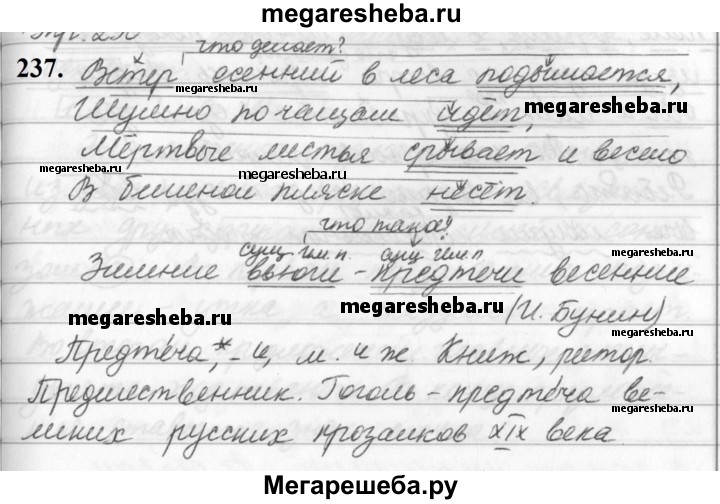 megaresheba.ru
что делает?
237. Ветер осенний в леса подымается,
megaresheba.ru
megaresheba.ru
Шумно по чащам идёт,
megaresheba.ru
megaresheba.ru
Мёртвые листья срывает и весело
megaresheba.ru
В бешеной пляске несёт.
что такое?
сущ. им. п. сущ. им. п
megaresheba.ru
Зимние вьюги – предтечи весенние
megaresheba.ru
megaresheba.ru
(И. Бунин)
Предтеча*, -и, м. и ж. Книж., ритор.
megaresheba.ru
Предшественник. Гоголь – предтеча ве-
megaresheba.ru
ликих русских прозаиков XIX века.
Мегарешеба.ру